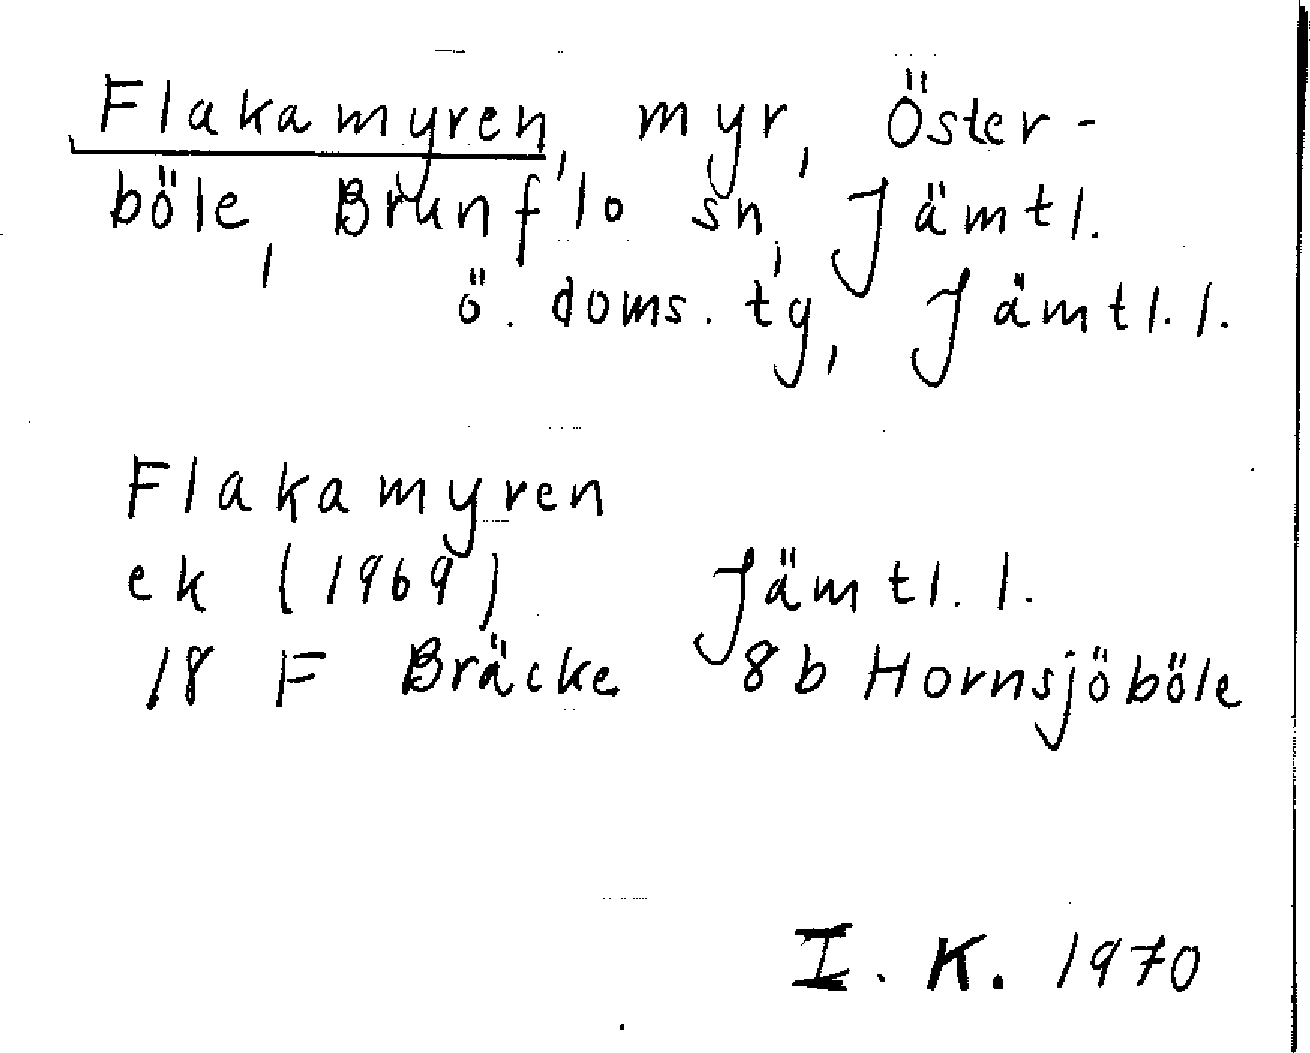 Flakamyren, myr, Öster-
böle, Brunflo sn, Jämtl.
ö. doms. tg, Jämtl. l.
Flakamyren
ek (1969) Jämtl. l.
18 F Bräcke 8b Hornsjöböle
I. K. 1970